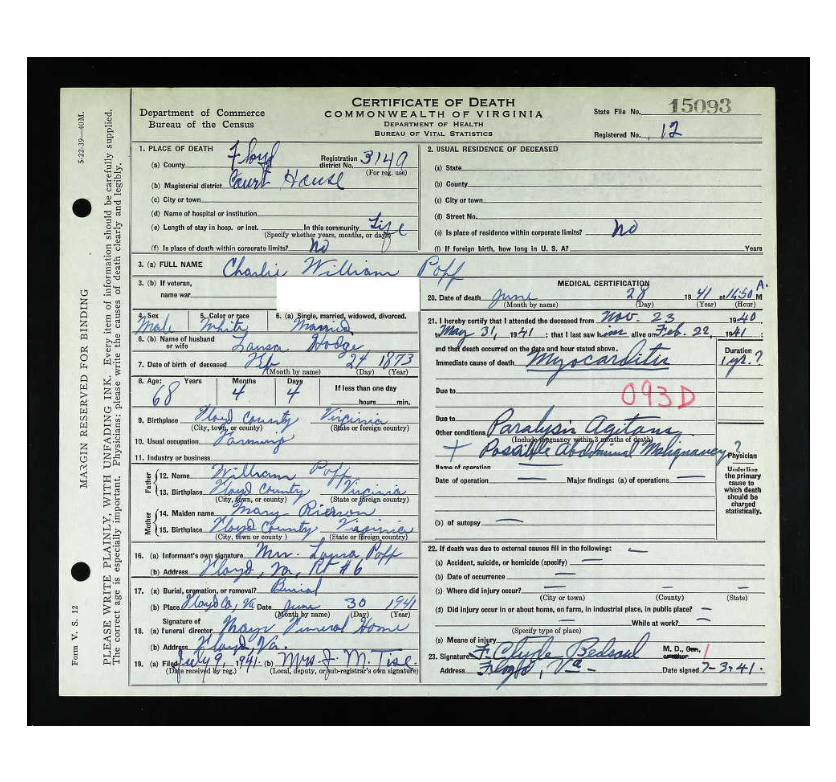 CERTIFICATE OF DEATH
COMMONWEALTH OF VIRGINIA
DEPARTMENT OF HEALTH
BUREAU OF VITAL STATISTICS
Department of Commerce
Bureau of the Census
State File No. 15093
Registered No. 12
5-22-39—40M.
MARGIN RESERVED FOR BINDING
PLEASE WRITE PLAINLY, WITH UNFADING INK. Every item of information should be carefully supplied.
The correct age is especially important. Physicians: please write the causes of death clearly and legibly.
Form V. S. 12
1. PLACE OF DEATH
(a) County Floyd Registration district No. 3149
(For reg. use)
(b) Magisterial district Court House
(c) City or town
(d) Name of hospital or institution
(e) Length of stay in hosp. or inst. In this community Life
(Specify whether years, months, or days)
(f) Is place of death within corporate limits? No
2. USUAL RESIDENCE OF DECEASED
(a) State
(b) County
(c) City or town
(d) Street No.
(e) Is place of residence within corporate limits? No
(f) If foreign birth, how long in U. S. A? Years
3. (a) FULL NAME Charlie William Poff
3. (b) If veteran,
name war
4. Sex 5. Color or race 6. (a) Single, married, widowed, divorced.
Male White Married
6. (b) Name of husband
or wife Laura Hodge
7. Date of birth of deceased Feb 24 1873
(Month by name) (Day) (Year)
8. Age: Years Months Days If less than one day
68 4 4 hours min.
9. Birthplace Floyd County Virginia
(City, town, or county) (State or foreign country)
10. Usual occupation Farming
11. Industry or business
Father
12. Name William Poff
13. Birthplace Floyd County Virginia
(City, town, or county) (State or foreign country)
Mother
14. Maiden name Mary
15. Birthplace Floyd County Virginia
(City, town, or county) (State or foreign country)
16. (a) Informant's own signature Mrs. Laura Poff
(b) Address Floyd, Va, Rt #6
17. (a) Burial, cremation, or removal? Burial
(b) Place Floyd Co, Va Date June 30 1941
(Month by name) (Day) (Year)
Signature of
18. (a) funeral director Funeral Home
(b) Address Floyd Va.
19. (a) Filed July 9, 1941 (b) Mrs. J. M.
(Date received by reg.) (Local, deputy, or sub-registrar's own signature)
MEDICAL CERTIFICATION
20. Date of death June 28 1941 at 11:50 A. M
(Month by name) (Day) (Year) (Hour)
21. I hereby certify that I attended the deceased from Nov. 23 1940
to May 31, 1941; that I last saw him alive on Feb. 22 1941;
and that death occurred on the date and hour stated above.
Duration
Immediate cause of death Myocarditis 1 yr.?
Due to
093D
Due to
Other conditions Paralysis Agitans
(Include pregnancy within 3 months of death)
+ Possible Abdominal Malignancy?
Name of operation
Date of operation — Major findings: (a) of operations —
(b) of autopsy —
Physician
Underline
the primary
cause to
which death
should be
charged
statistically.
22. If death was due to external causes fill in the following: —
(a) Accident, suicide, or homicide (specify) —
(b) Date of occurrence —
(c) Where did injury occur? —
(City or town) (County) (State)
(d) Did injury occur in or about home, on farm, in industrial place, in public place? —
While at work? —
(Specify type of place)
(e) Means of injury
23. Signature F. Clyde Bedsaul M. D.,
Address Floyd, Va— Date signed 7-3-41.